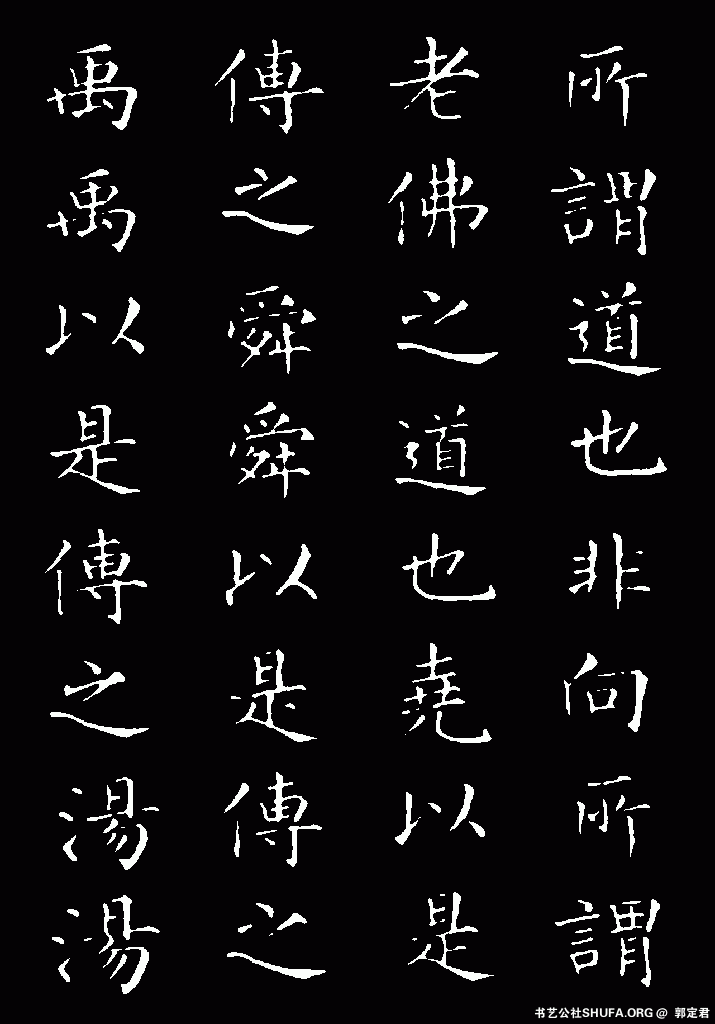 所謂道也非向所謂
老佛之道也堯以是
傳之舜舜以是傳之
禹禹以是傳之湯湯
书艺公社SHUFA.ORG @ 郭定君